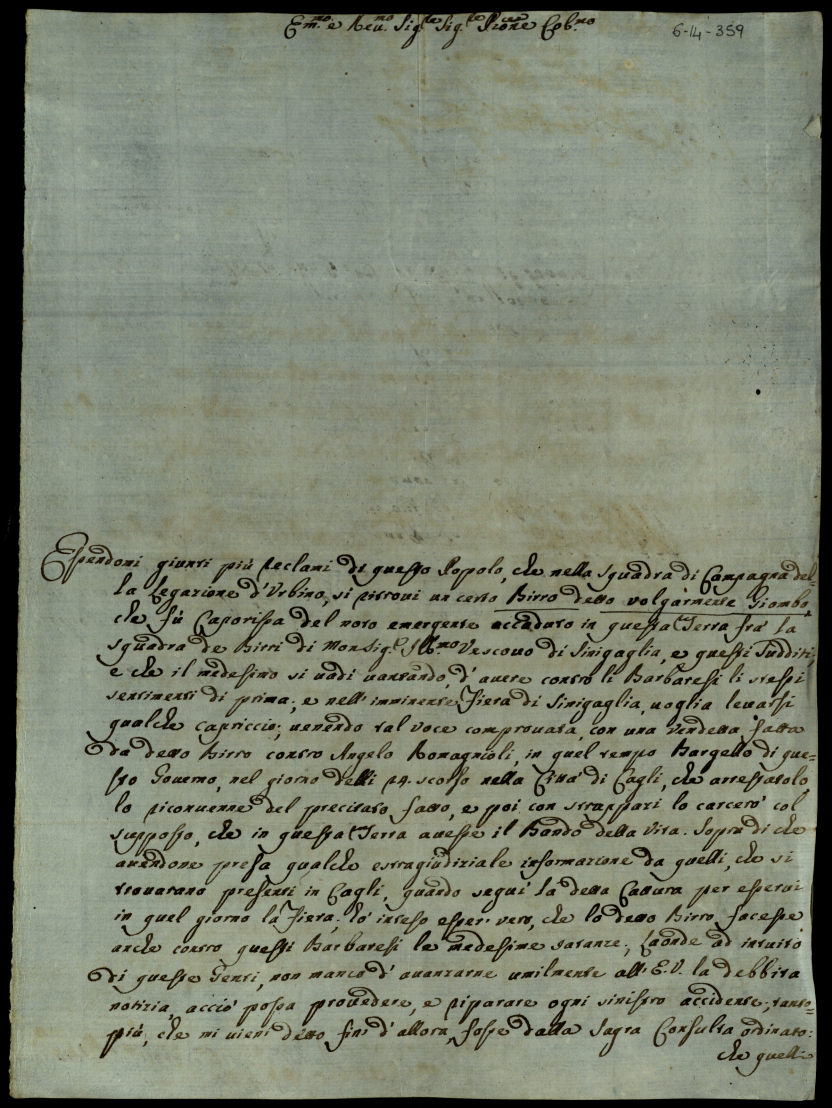 Em.mo e Reu.mo Sig.re Sig.re P̃rone Col.mo
6-14-359
Essendomi giunti più reclami di questo Popolo, che nella squadra di Campagna del-
la Legazione d'Urbino, si ritrovi un certo Birro detto volgarmente Giombo,
che fù Caporissa del noto emergente accaduto in questa Terra frà la
squadra de Birri di Monsig.r Ill.mo Vescouo di Sinigaglia, e questi sudditi,
e che il medesimo si uadi uantando, d'auere contro li Barbaresi li stessi
sentimenti di prima; e nell'imminente Fiera di Sinigaglia, uoglia leuarsi
qualche capriccio; uenendo tal voce comprouata, con una Vendetta fatta
da detto Birro contro Angelo Romagnioli, in quel tempo Bargello di que=
sto Gouerno, nel giorno delli 24. scorso nella Città di Cagli, che arrestatolo
lo riconuenne del precitato fatto, e poi con strappazi lo carcerò col
supposto, che in questa Terra auesse il Bando della Vita. Sopra di che
auendone presa qualche estragiudiziale informazione da quelli, che si
trouarano presenti in Cagli, quando seguì la detta Cattura per esserui
in quel giorno la Fiera; hò inteso esser vero, che lo detto Birro facesse
anche contro questi Barbaresi le medesime iatanze; Laonde ad intuito
di queste Genti, non manco d'auanzarne umilmente all'E.V. la debbita
notizia, acciò possa prouedere, e riparare ogni sinistro accidente; tanto=
più, che mi uien detto fin d'allora, fosse dalla Sagra Consulta ordinato:
che quelli